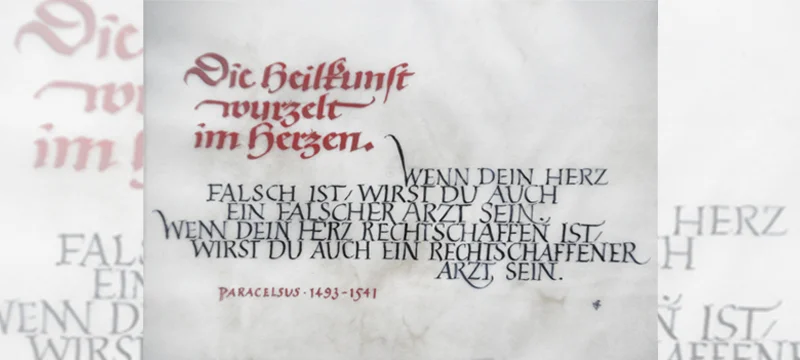 Die Heilkunst
wurzelt
im Herzen.
WENN DEIN HERZ
FALSCH IST, WIRST DU AUCH
EIN FALSCHER ARZT SEIN.
WENN DEIN HERZ RECHTSCHAFFEN IST,
WIRST DU AUCH EIN RECHTSCHAFFENER
ARZT SEIN.
PARACELSUS · 1493-1541